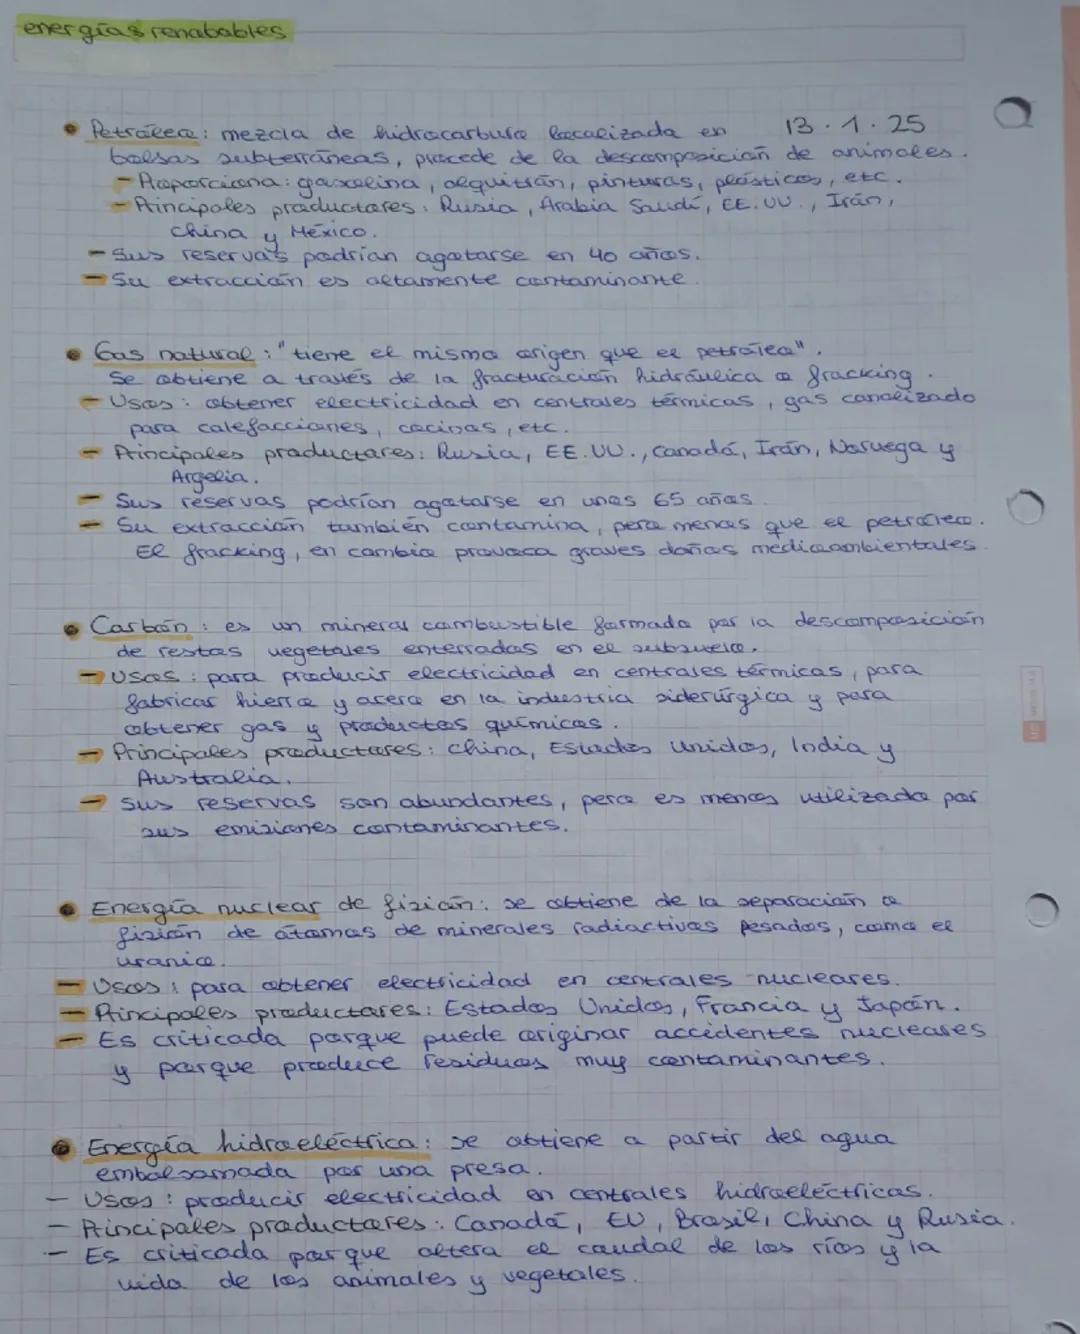 energías renobables
13.1.25
• Petróleo: mezcla de hidrocarburo localizada en
bolsas subterráneas, procede de la descomposición de animales.
- Proporciona: gasolina, alquitrán, pinturas, plásticos, etc.
- Principales productores: Rusia, Arabia Saudí, EE.UU., Irán,
China y México.
- Sus reservas podrían agotarse en 40 años.
- Su extracción es altamente contaminante.
• Gas natural: "tiene el mismo origen que el petróleo".
Se obtiene a través de la fracturación hidráulica o fracking.
- Usos: obtener electricidad en centrales térmicas, gas canalizado
para calefacciones, cocinas, etc.
- Principales productores: Rusia, EE.UU., Canadá, Irán, Noruega y
Argelia.
- Sus reservas podrían agotarse en unos 65 años.
- Su extracción también contamina, pero menos que el petróleo.
El fracking, en cambio provoca graves daños medioambientales.
• Carbón: es un mineral combustible formado por la descomposición
de restos vegetales enterrados en el subsuelo.
- Usos: para producir electricidad en centrales térmicas, para
fabricar hierro y acero en la industria siderúrgica y para
obtener gas y productos químicos.
- Principales productores: China, Estados Unidos, India y
Australia.
- Sus reservas son abundantes, pero es menos utilizado por
sus emisiones contaminantes.
• Energía nuclear de fisión: se obtiene de la separación o
fisión de átomos de minerales radiactivos pesados, como el
uranio.
- Usos: para obtener electricidad en centrales nucleares.
- Principales productores: Estados Unidos, Francia y Japón.
- Es criticada porque puede originar accidentes nucleares
y porque produce residuos muy contaminantes.
• Energía hidroeléctrica: se obtiene a partir del agua
embalsamada por una presa.
- Usos: producir electricidad en centrales hidroeléctricas.
- Principales productores: Canadá, EU, Brasil, China y Rusia.
- Es criticada porque altera el caudal de los ríos y la
vida de los animales y vegetales.